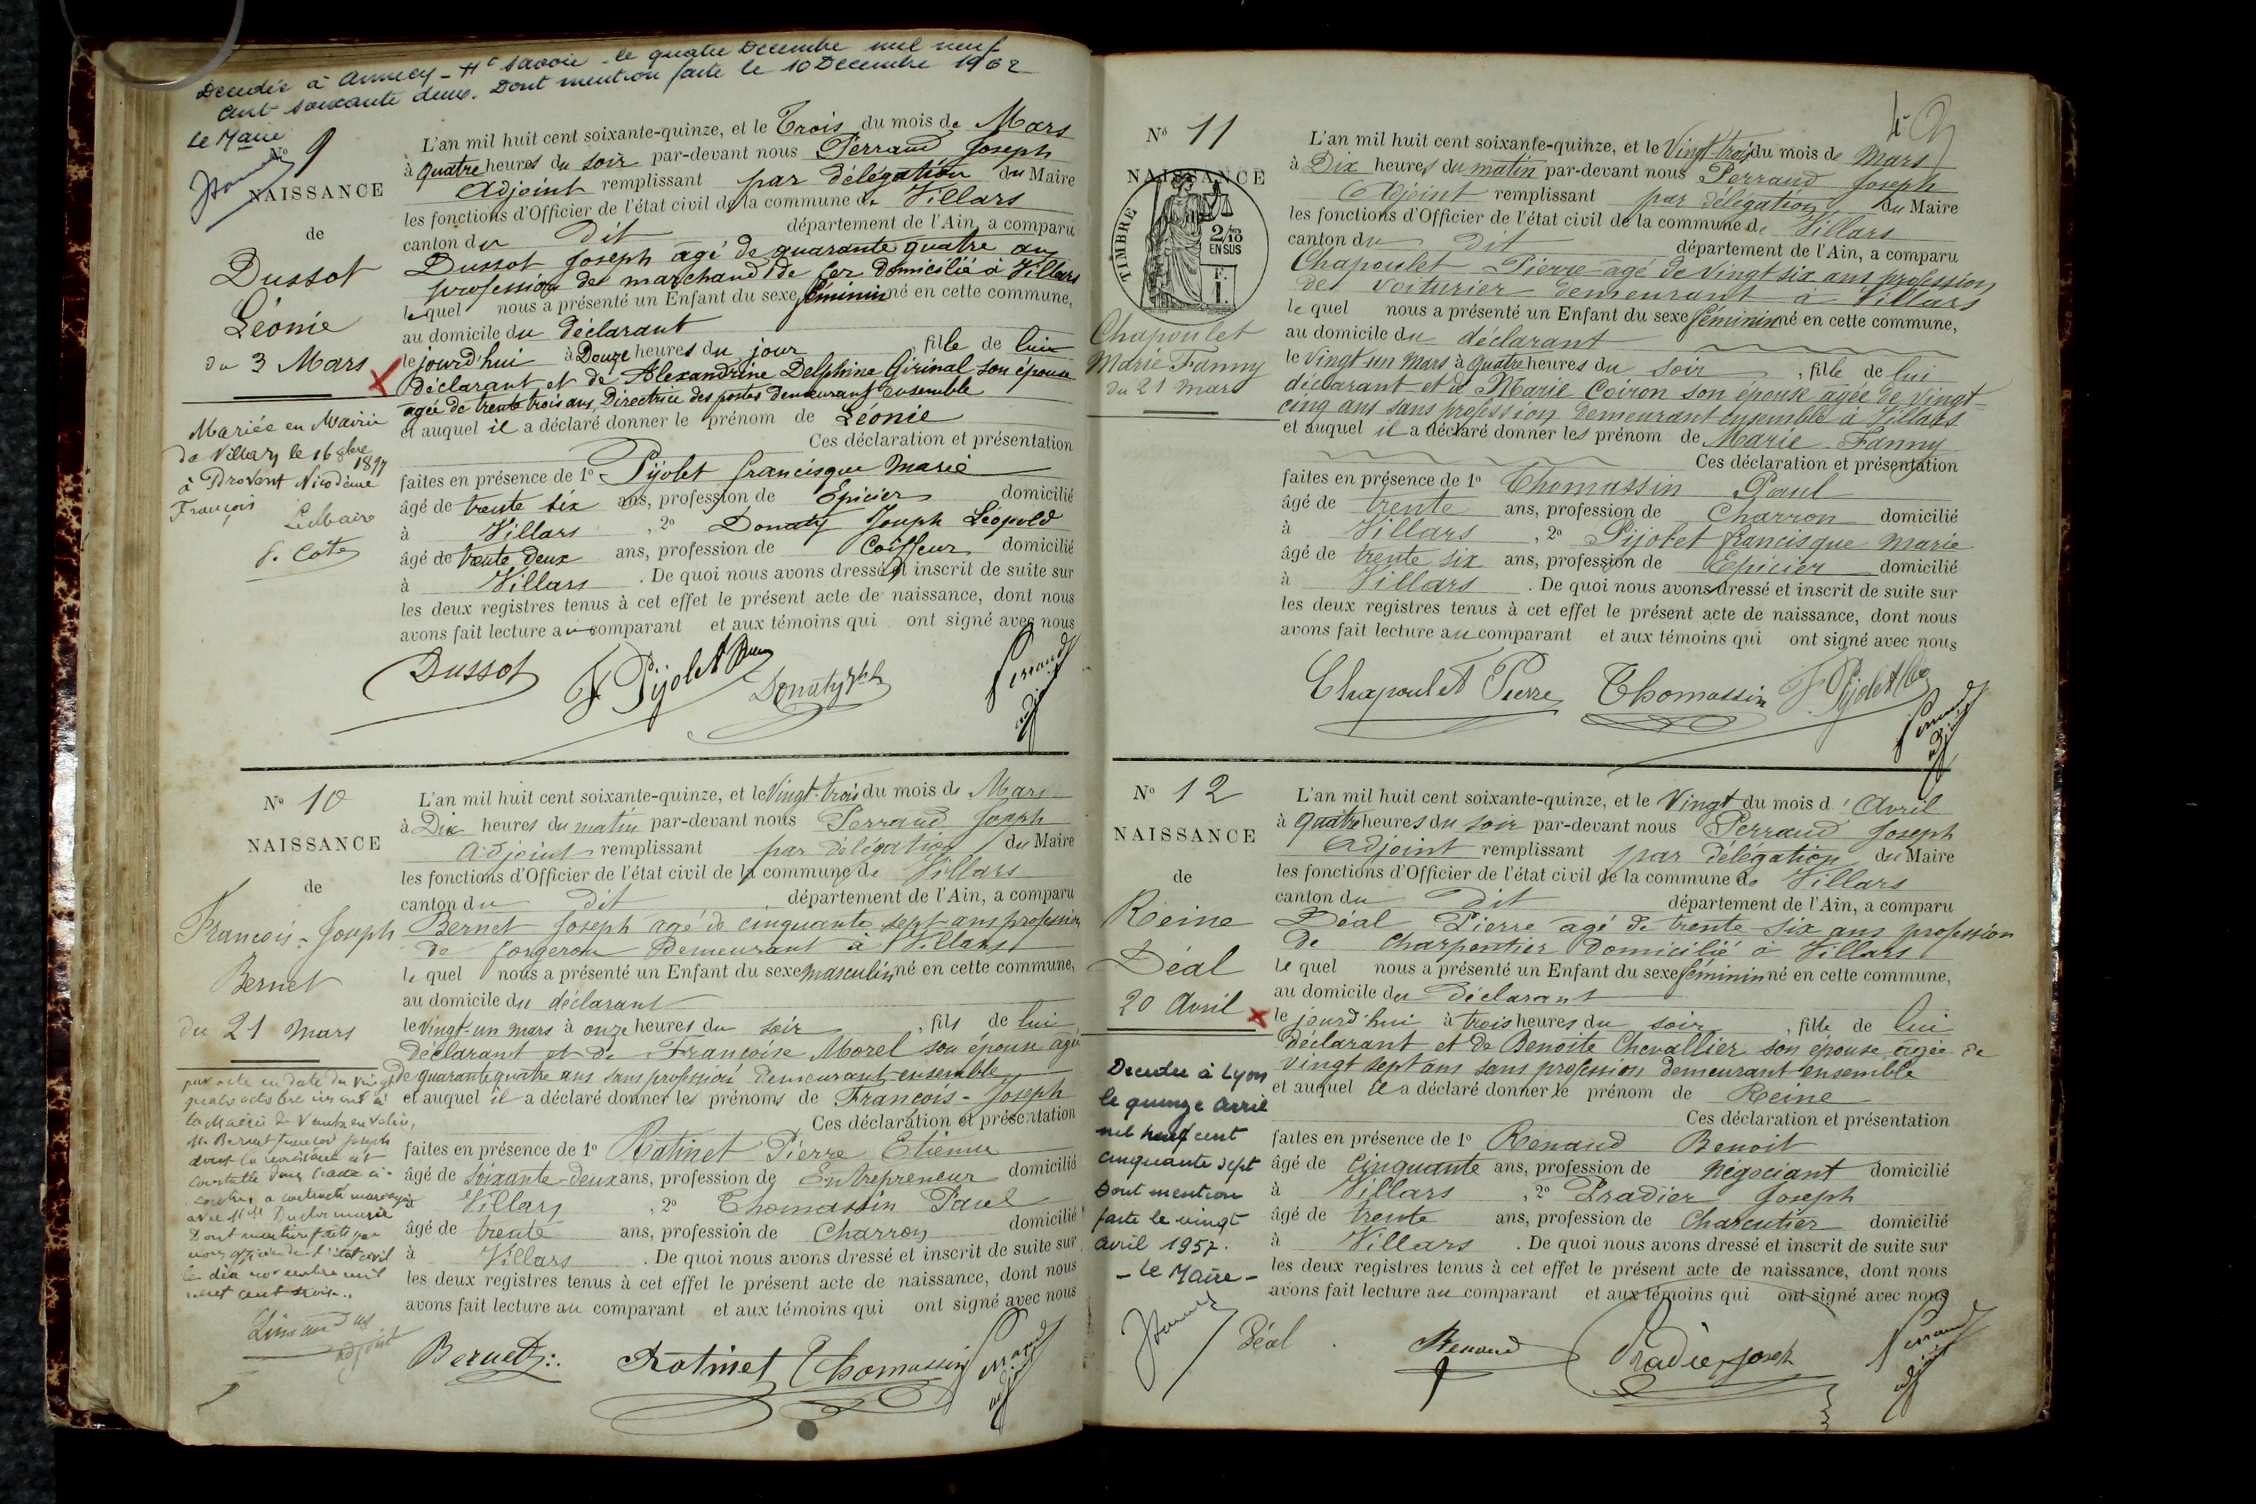 Décédée à Annecy - Hte Savoie - le quatre Décembre mil neuf
cent soixante deux. Dont mention faite le 10 Décembre 1962
Le Maire
No 9
NAISSANCE
de
Dussot
Léonie
du 3 Mars
Mariée en Mairie
de Villars le 16 8bre
1897
à Provent Nicodème
François
Le Maire
L'an mil huit cent soixante-quinze, et le Trois du mois de Mars
à quatre heures du soir par-devant nous Perraud Joseph
Adjoint remplissant par délégation du Maire
les fonctions d'Officier de l'état civil de la commune de Villars
canton du Dit département de l'Ain, a comparu
Dussot Joseph agé de quarante quatre ans
profession de marchand de fer domicilié à Villars
lequel nous a présenté un Enfant du sexe féminin né en cette commune,
au domicile du déclarant
le jourd'hui à Douze heures du jour, fille de lui
déclarant et de Alexandrine Delphine Girinal son épouse
agée de trente trois ans, Directrice des postes demeurant ensemble
et auquel il a déclaré donner le prénom de Léonie
Ces déclaration et présentation
faites en présence de 1o Pijolet francisque Marie
âgé de trente six ans, profession de Epicier domicilié
à Villars, 2o Donaty Joseph Léopold
âgé de trente deux ans, profession de Coiffeur domicilié
à Villars. De quoi nous avons dressé et inscrit de suite sur
les deux registres tenus à cet effet le présent acte de naissance, dont nous
avons fait lecture au comparant et aux témoins qui ont signé avec nous
Dussot F. Pijolet Donaty Perraud adj
No 10
NAISSANCE
de
François-Joseph
Bernet
du 21 Mars
L'an mil huit cent soixante-quinze, et le Vingt-trois du mois de Mars
à Dix heures du matin par-devant nous Perraud Joseph
Adjoint remplissant par délégation du Maire
les fonctions d'Officier de l'état civil de la commune de Villars
canton du dit département de l'Ain, a comparu
Bernet Joseph agé de cinquante sept ans profession
de forgeron demeurant à Villars
lequel nous a présenté un Enfant du sexe masculin né en cette commune,
au domicile du déclarant
le vingt-un mars à onze heures du soir, fils de lui
déclarant et de Françoise Morel son épouse agée
de quarante quatre ans sans profession demeurant ensemble
et auquel il a déclaré donner les prénoms de François-Joseph
Ces déclaration et présentation
faites en présence de 1o Ratinet Pierre Etienne
âgé de soixante-deux ans, profession de Entrepreneur domicilié
à Villars, 2o Thomassin Paul
âgé de trente ans, profession de Charron domicilié
à Villars. De quoi nous avons dressé et inscrit de suite sur
les deux registres tenus à cet effet le présent acte de naissance, dont nous
avons fait lecture au comparant et aux témoins qui ont signé avec nous
par acte en date du vingt
Dont mention faite par
nous officier de l'état civil
le dix novembre mil
adjoint
Bernet Ratinet Thomassin Perraud adj
No 11
NAISSANCE
TIMBRE
2/10
EN SUS
Chapoulet
Marie Fanny
du 21 Mars
L'an mil huit cent soixante-quinze, et le Vingt-trois du mois de Mars
à Dix heures du matin par-devant nous Perraud Joseph
Adjoint remplissant par délégation du Maire
les fonctions d'Officier de l'état civil de la commune de Villars
canton du Dit département de l'Ain, a comparu
Chapoulet Pierre agé de vingt six ans profession
de voiturier demeurant à Villars
lequel nous a présenté un Enfant du sexe féminin né en cette commune,
au domicile du déclarant
le Vingt un Mars à quatre heures du soir, fille de lui
déclarant et de Marie Coiron son épouse agée de vingt-
cinq ans sans profession demeurant ensemble à Villars
et auquel il a déclaré donner les prénom de Marie Fanny
Ces déclaration et présentation
faites en présence de 1o Thomassin Paul
âgé de trente ans, profession de Charron domicilié
à Villars, 2o Pijolet francisque Marie
âgé de trente six ans, profession de Epicier domicilié
à Villars. De quoi nous avons dressé et inscrit de suite sur
les deux registres tenus à cet effet le présent acte de naissance, dont nous
avons fait lecture au comparant et aux témoins qui ont signé avec nous
Chapoulet Pierre Thomassin F. Pijolet Perraud adj
No 12
NAISSANCE
de
Reine
Déal
20 Avril
Décédée à Lyon
le quinze Avril
mil neuf cent
cinquante sept
Dont mention
faite le vingt
Avril 1957.
- Le Maire -
L'an mil huit cent soixante-quinze, et le Vingt du mois d'Avril
à quatre heures du soir par-devant nous Perraud Joseph
Adjoint remplissant par délégation du Maire
les fonctions d'Officier de l'état civil de la commune de Villars
canton du Dit département de l'Ain, a comparu
Déal Pierre agé de trente six ans profession
de charpentier domicilié à Villars
lequel nous a présenté un Enfant du sexe féminin né en cette commune,
au domicile du Déclarant
le jourd'hui à trois heures du soir, fille de lui
déclarant et de Benoîte Chevallier son épouse agée de
vingt sept ans sans profession demeurant ensemble
et auquel il a déclaré donner le prénom de Reine
Ces déclaration et présentation
faites en présence de 1o Renaud Benoit
âgé de cinquante ans, profession de négociant domicilié
à Villars, 2o Pradier Joseph
âgé de trente ans, profession de Charcutier domicilié
à Villars. De quoi nous avons dressé et inscrit de suite sur
les deux registres tenus à cet effet le présent acte de naissance, dont nous
avons fait lecture au comparant et aux témoins qui ont signé avec nous
Déal Renaud Pradier Joseph Perraud adj